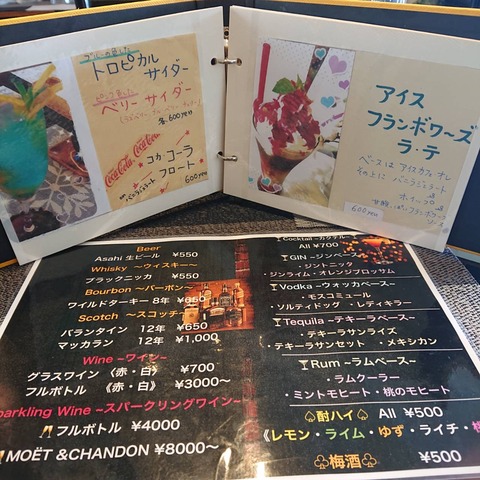 ブルーの色した
トロピカル
サイダー
ピンク色した
ベリー サイダー
各600yen
Coca-Cola Coca-Cola
コカ・コーラ
フロート
600yen
アイス
フランボワーズ
ラ・テ
ベースは アイスカフェ オレ
その上に バニラジェラート
ホイップ
甘酸っぱいフランボワーズ
ソース
600yen
Beer
Asahi 生ビール ¥550
Whisky 〜ウィスキー〜
ブラックニッカ ¥550
Bourbon 〜バーボン〜
ワイルドターキー 8年 ¥660
Scotch 〜スコッチ〜
バランタイン 12年 ¥650
マッカラン 12年 ¥1,000
Wine −ワイン−
グラスワイン 《赤・白》 ¥700
フルボトル 《赤・白》 ¥3000〜
parkling Wine −スパークリングワイン−
フルボトル ¥4000
MOËT &CHANDON ¥8000〜
Cocktail −カクテル−
All ¥700
GIN −ジンベース−
・ジントニック
・ジンライム・オレンジブロッサム
Vodka −ウォッカベース−
・モスコミュール
・ソルティドッグ ・レディキラー
Tequila −テキーラベース−
・テキーラサンライズ
・テキーラサンセット ・メキシカン
Rum −ラムベース−
・ラムクーラー
・ミントモヒート ・桃のモヒート
♤酎ハイ♤ All ¥500
《レモン・ライム・ゆず・ライチ・
♧梅酒♧ ¥500